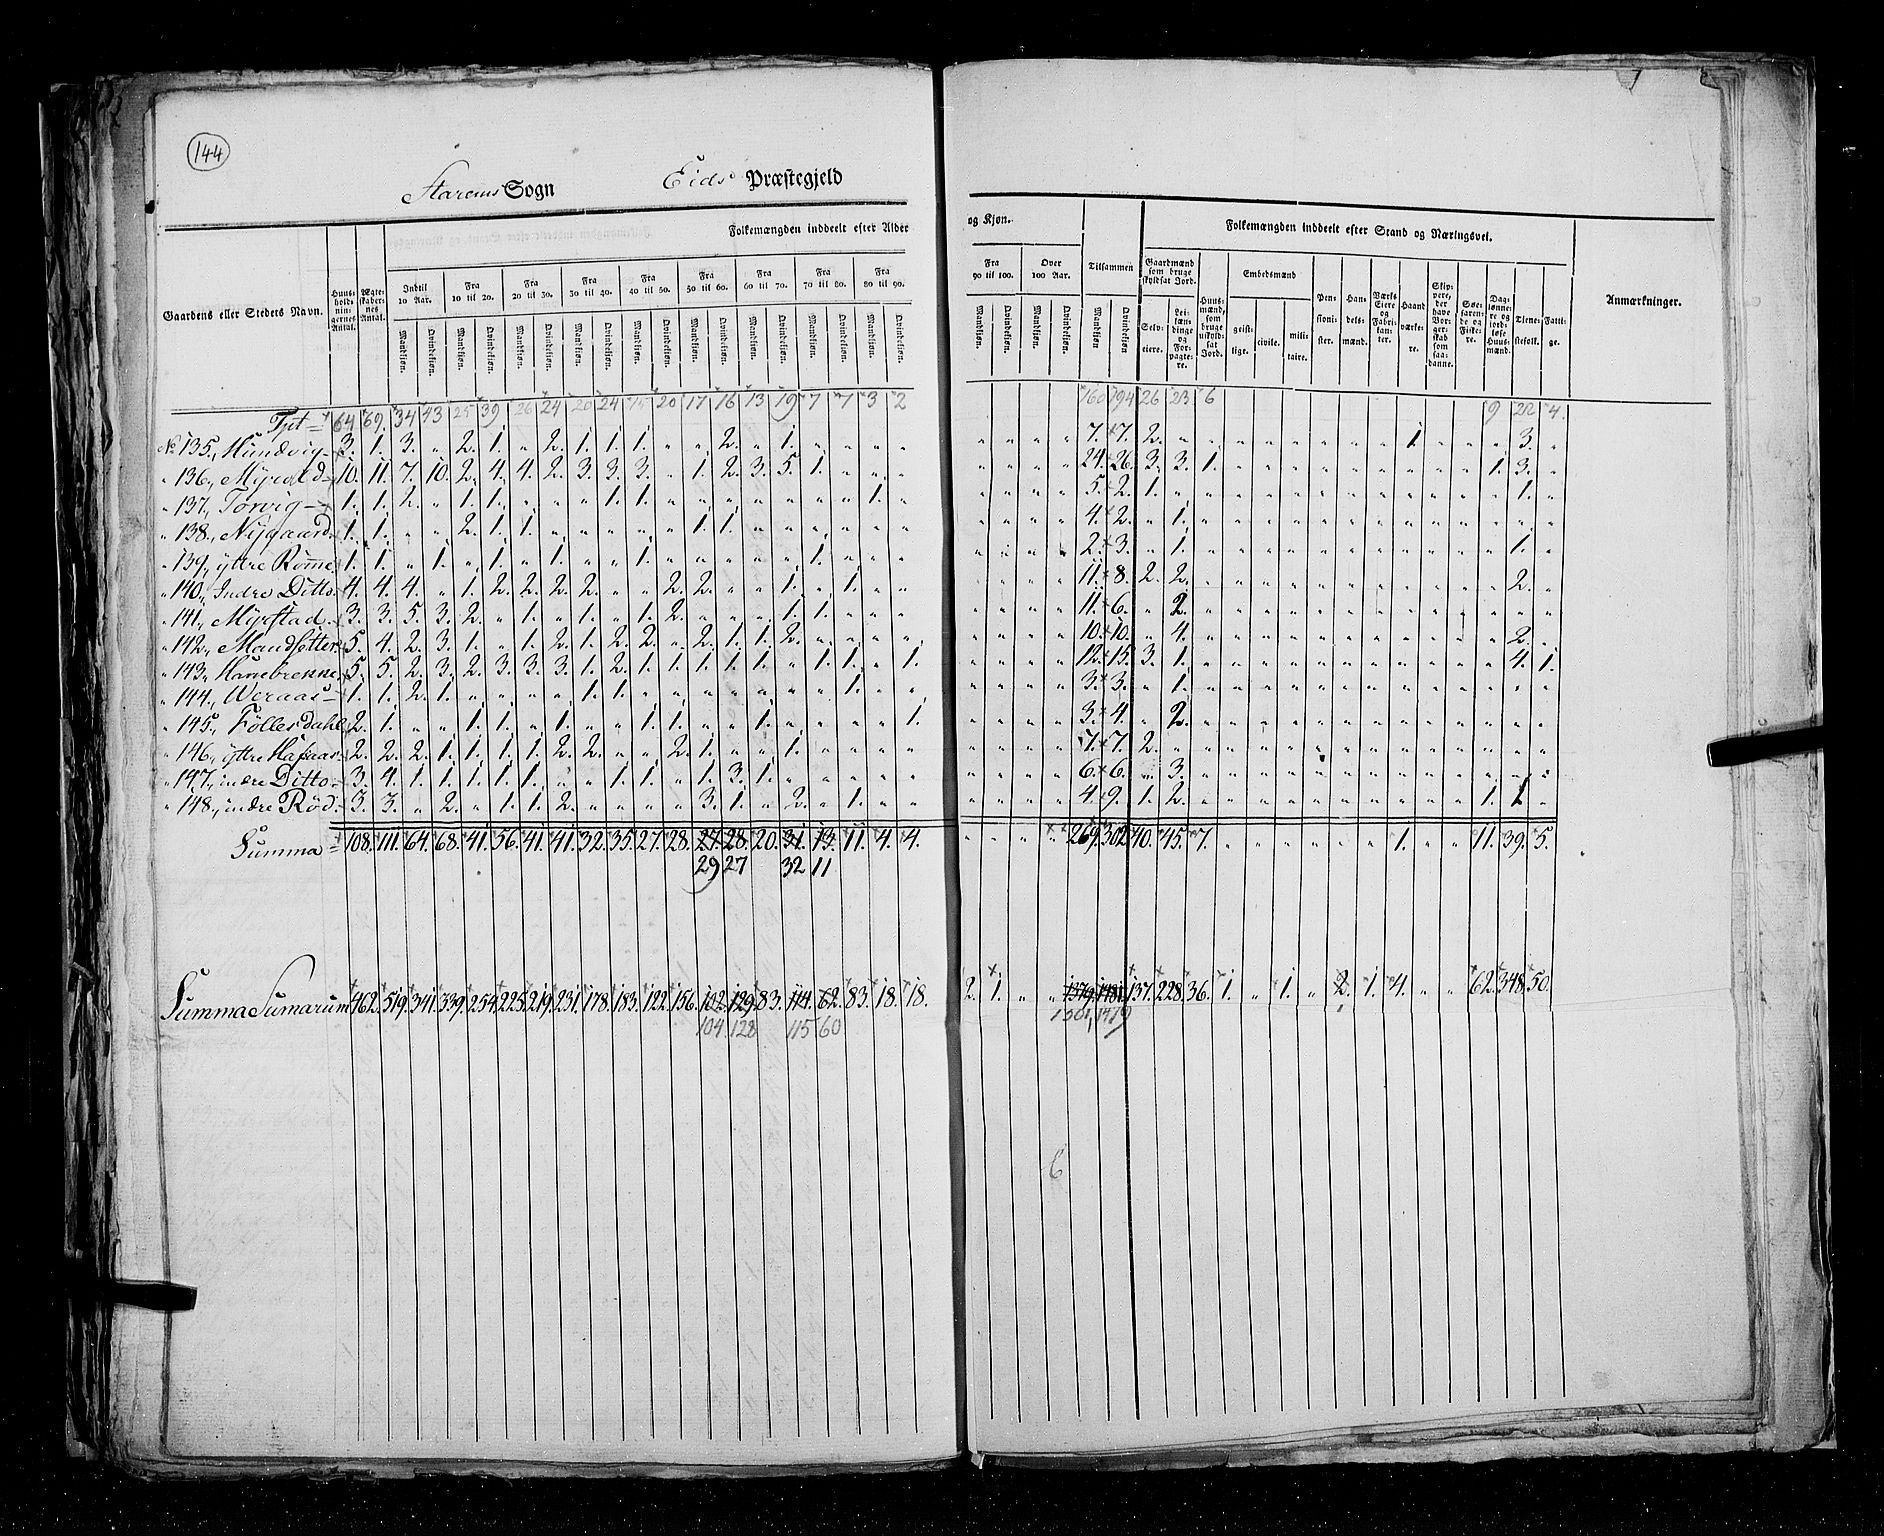 144
Starems Sogn Eids Præstegjeld
Gaardens eller Stedets Navn. Huusholdningernes Antal. Ægteskabernes Antal. Folkemængden inddeelt efter Alder og Kjøn. Tilsammen Folkemængden inddeelt efter Stand og Næringsvei. Anmærkninger.
Indtil 10 Aar. Fra 10 til 20. Fra 20 til 30. Fra 30 til 40. Fra 40 til 50. Fra 50 til 60. Fra 60 til 70. Fra 70 til 80. Fra 80 til 90. Fra 90 til 100. Over 100 Aar.
Gaardmænd som bruge skyldsat Jord. Huusmænd, som bruge uskyldsat Jord. Embedsmænd Pensionister. Handelsmænd. Værks Eiere og Fabrikanter. Haandværkere. Skippere, der have Borgerskab som saadanne. Søefarende og Fiskere. Daglønnere og jordløse Huusmænd. Tjenestefolk. Fattige.
Selveiere. Leilændinge og Forpagtere. geistlige. civile. militaire.
Mandkjøn. Qvindekjøn. Mandkjøn. Qvindekjøn. Mandkjøn. Qvindekjøn. Mandkjøn. Qvindekjøn. Mandkjøn. Qvindekjøn. Mandkjøn. Qvindekjøn. Mandkjøn. Qvindekjøn. Mandkjøn. Qvindekjøn. Mandkjøn. Qvindekjøn. Mandkjøn. Qvindekjøn. Mandkjøn. Qvindekjøn. Mandkjøn. Qvindekjøn.
64 69. 34 43 25 39 26 24 20 24 15 20 17 16 13 19 7 7 3 2 160 194 26 23 6 9 22 4.
No 135., Hundvig 3. 1. 3. „ 2. 1. „ 2. 1. 1. 1. „ „ 2. „ 1. „ „ „ „ „ „ „ „ 7. 7. 2. „ „ „ „ „ „ „ „ 1. „ „ „ 3. „
„ 136., Myrold 10. 11. 7. 10. 2. 4. 4. 2. 3. 3. 3. „ 1. 2. 3. 5. 1. „ „ „ „ „ „ „ 24. 26. 3. 3. 1. „ „ „ „ „ „ „ „ „ 1. 3. „
„ 137., Torvig 1. 1. 2. „ 1. 1. „ „ „ 1. 1. „ „ „ „ „ „ „ 1. „ „ „ „ „ 5. 2. 1. „ „ „ „ „ „ „ „ „ „ „ „ 1. „
„ 138., Nygaard 1. 1. „ „ 2. 1. 1. „ „ „ „ „ 1. 1. „ „ „ „ „ „ „ „ „ „ 4. 2. „ 1. „ „ „ „ „ „ „ „ „ „ „ „ „
„ 139., yttre Rømme 1. 1. „ 1. „ 1. „ 1. „ „ 1. „ „ „ „ „ 1. „ „ „ „ „ „ „ 2. 3. „ 1. „ „ „ „ „ „ „ „ „ „ „ 1. „
„ 140., Indre Ditto 4. 4. 4. „ 1. 2. 2. 2. 2. „ „ 2. 2. „ „ 1. „ 1. „ „ „ „ „ „ 11. 8. 2. 2. „ „ „ „ „ „ „ „ „ „ „ 2. „
„ 141., Myrstad 3. 3. 5. 3. 2. „ 1. „ 1. „ 1. 2. „ „ „ 1. 1. „ „ „ „ „ „ „ 11. 6. „ 2. „ „ „ „ „ „ „ „ „ „ „ „ „
„ 142., Maudsetter 5. 4. 2. 3. 1. „ 1. 2. 1. 2. 2. „ 2. 1. 1. 2. „ „ „ „ „ „ „ „ 10. 10. „ 4. „ „ „ „ „ „ „ „ „ „ „ 2. „
„ 143., Hanebrekke 5. 5. 2. 3. 2. 3. 3. 3. 1. 2. 1. 1. 1. 1. 1. „ 1. 1. „ 1. „ „ „ „ 12. 15. 3. 1. „ „ „ „ „ „ „ „ „ „ „ 4. 1.
„ 144., Weraas 1. 1. 2. 1. „ „ „ „ 1. 1. „ „ „ „ „ „ „ 1. „ „ „ „ „ „ 3. 3. „ 1. „ „ „ „ „ „ „ „ „ „ „ „ „
„ 145., Føllesdahl 2. 1. „ „ 1. 1. „ 1. „ „ 1. 1. „ „ 1. „ „ „ „ 1. „ „ „ „ 3. 4. „ 2. „ „ „ „ „ „ „ „ „ „ „ „ „
„ 146., yttre Hafaas 2. 2. 2. 1. 1. 1. 1. 2. 2. „ „ 2. 1. „ „ 1. „ „ „ „ „ „ „ „ 7. 7. 2. „ „ „ „ „ „ „ „ „ „ „ „ „ „
„ 147., indre Ditto 3. 4. 1. 1. 1. 1. 1. „ „ 1. 1. „ 1. 3. 1. „ „ „ „ „ „ „ „ „ 6. 6. „ 3. „ „ „ „ „ „ „ „ „ „ „ „ „
„ 148., indre Rød 3. 3. „ 2. „ 1. 1. 2. „ „ „ „ 3. 1. „ 2. „ 1. „ „ „ „ „ „ 4. 9. 1. 2. „ „ „ „ „ „ „ „ „ „ 1. 1 „
Summa 108. 111. 64. 68. 41. 56. 41. 41. 32. 35. 27. 28. 27. 28. 20. 31. 13. 11. 4. 4. „ „ „ „ 269. 302. 40. 45. 7. „ „ „ „ „ „ 1. „ „ 11. 39. 5.
29 27 32 11
Summa Sumarum 462. 519. 341. 339. 254. 225. 219. 231. 178. 183. 122. 156. 102. 129. 83. 114. 62. 83. 18. 18. 2. 1. „ „ 1379. 1481. 137. 228. 36. 1. „ 1. „ 2. 1. 4. „ „ 62. 348. 50.
104. 128 115 60 1479
6